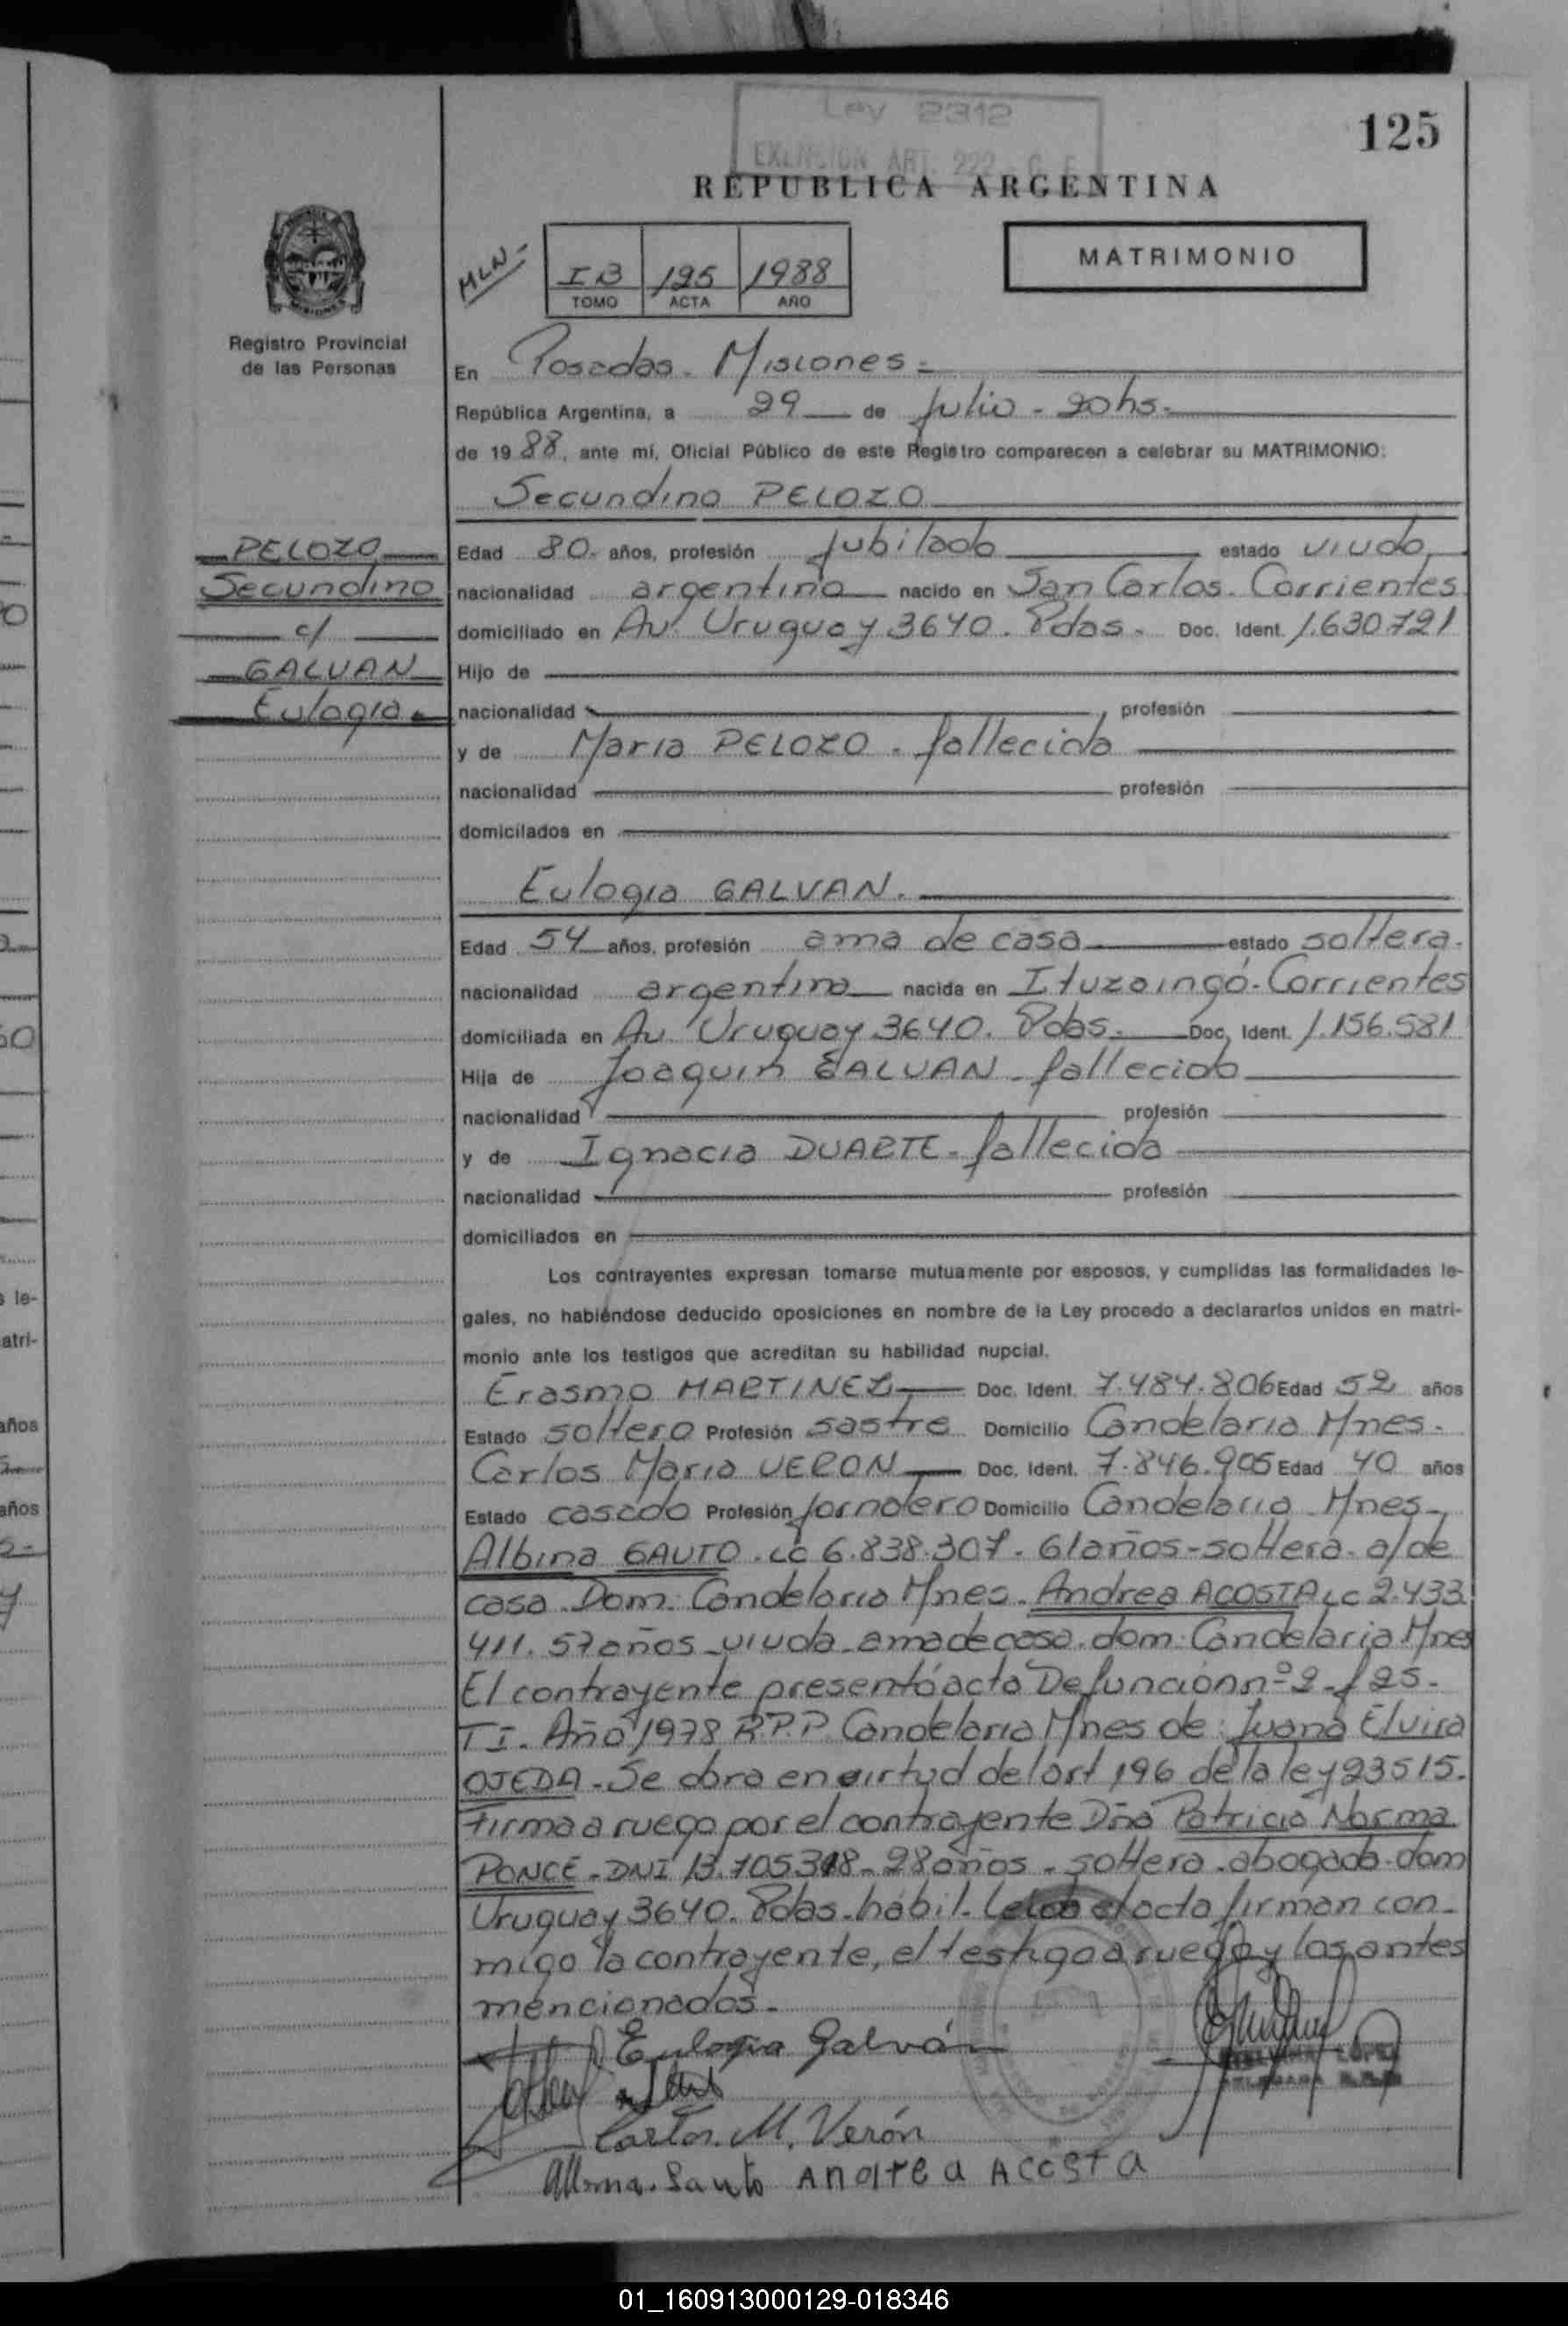 Ley 2312
EXENCION ART. 222 - C. F.
125
REPUBLICA ARGENTINA
MLN-
IB 125 1988
TOMO ACTA AÑO
MATRIMONIO
Registro Provincial
de las Personas
En Posadas. Misiones =
República Argentina, a 29 de Julio - 20hs.
de 1988, ante mí, Oficial Público de este Registro comparecen a celebrar su MATRIMONIO:
Secundino PELOZO
PELOZO
Secundino
c/
GALVAN
Eulogia
Edad 80. años, profesión Jubilado estado viudo
nacionalidad argentina nacido en San Carlos. Corrientes
domiciliado en Av. Uruguay 3640. Pdas. Doc. Ident. 1.630721
Hijo de
nacionalidad profesión
y de Maria PELOZO. fallecida
nacionalidad profesión
domicilados en
Eulogia GALVAN.
Edad 54 años, profesión ama de casa estado soltera.
nacionalidad argentina nacida en Ituzaingó. Corrientes
domiciliada en Av. Uruguay 3640. Pdas. Doc. Ident. 1.156.581
Hija de Joaquin GALVAN - fallecido
nacionalidad profesión
y de Ignacia DUARTE - fallecida
nacionalidad profesión
domiciliados en
Los contrayentes expresan tomarse mutuamente por esposos, y cumplidas las formalidades le-
gales, no habiéndose deducido oposiciones en nombre de la Ley procedo a declararlos unidos en matri-
monio ante los testigos que acreditan su habilidad nupcial.
Erasmo MARTINEZ Doc. Ident. 7.484.806 Edad 52 años
Estado soltero Profesión sastre Domicilio Candelaria Mnes.
Carlos Maria VERON Doc. Ident. 7.846.905 Edad 40 años
Estado casado Profesión Jornalero Domicilio Candelaria Mnes.
Albina GAUTO. LC 6.838.307. 61años - soltera. a/de
casa. Dom. Candelaria Mnes. Andrea ACOSTA LC 2.433.
411. 57años - viuda - ama de casa. dom. Candelaria Mnes
El contrayente presentó acta Defuncion nº 2. f 25.
TI. Año 1978 R.P.P. Candelaria Mnes de: Juana Elvira
OJEDA. Se obra en virtud del art 196 de la ley 23515.
Firma a ruego por el contrayente Dña Patricia Norma
PONCE - DNI 13.105318 - 28años - soltera. abogada. dom
Uruguay 3640. Pdas. hábil. Leida el acta firman con-
migo la contrayente, el testigo a ruego y los antes
mencionados.
Eulogia Galván
LOPEZ
Carlos. M. Verón
Andrea ACOSTA
01_160913000129-018346